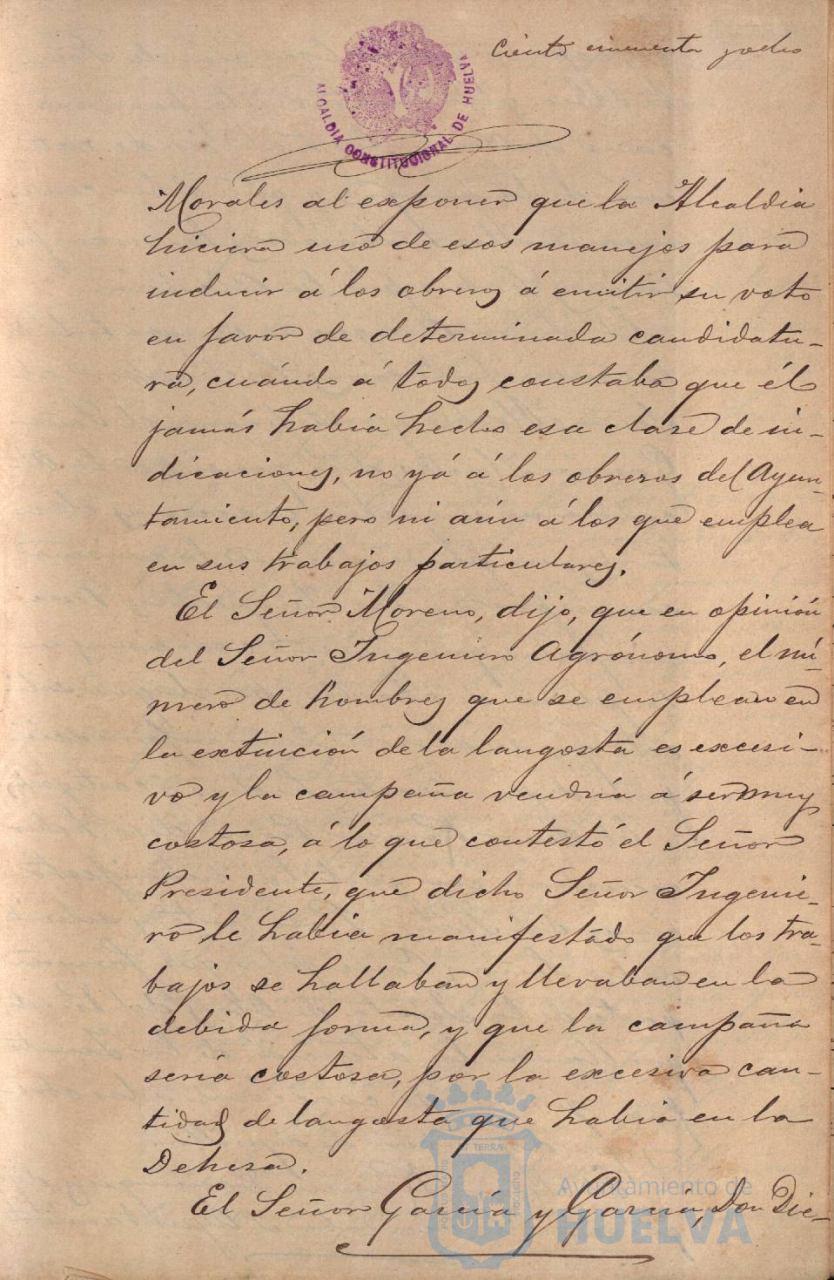 Ciento cincuenta y ocho
ALCALDIA CONSTITUCIONAL DE HUELVA
Morales al exponer que la Alcaldia
hiciera uso de esos manejos para
inducir á los obreros á emitir su voto
en favor de determinada candidatu-
ra, cuándo á todos constaba que él
jamás habia hecho esa clase de in-
dicaciones, no yá á los obreros del Ayun-
tamiento, pero ni aún á los que emplea
en sus trabajos particulares.
El Señor Moreno, dijo, que en opinión
del Señor Ingeniero Agrónomo, el nú-
mero de hombres que se emplean en
la extinción de la langosta es excesi-
vo y la campaña vendría á ser muy
costosa, á lo que contestó el Señor
Presidente, que dicho Señor Ingenie-
ro le habia manifestado que los tra-
bajos se hallaban y llevaban en la
debida forma, y que la campaña
sería costosa, por la excesiva can-
tidad de langosta que habia en la
Dehesa.
El Señor García y García, Don Die-
Ayuntamiento de
HUELVA